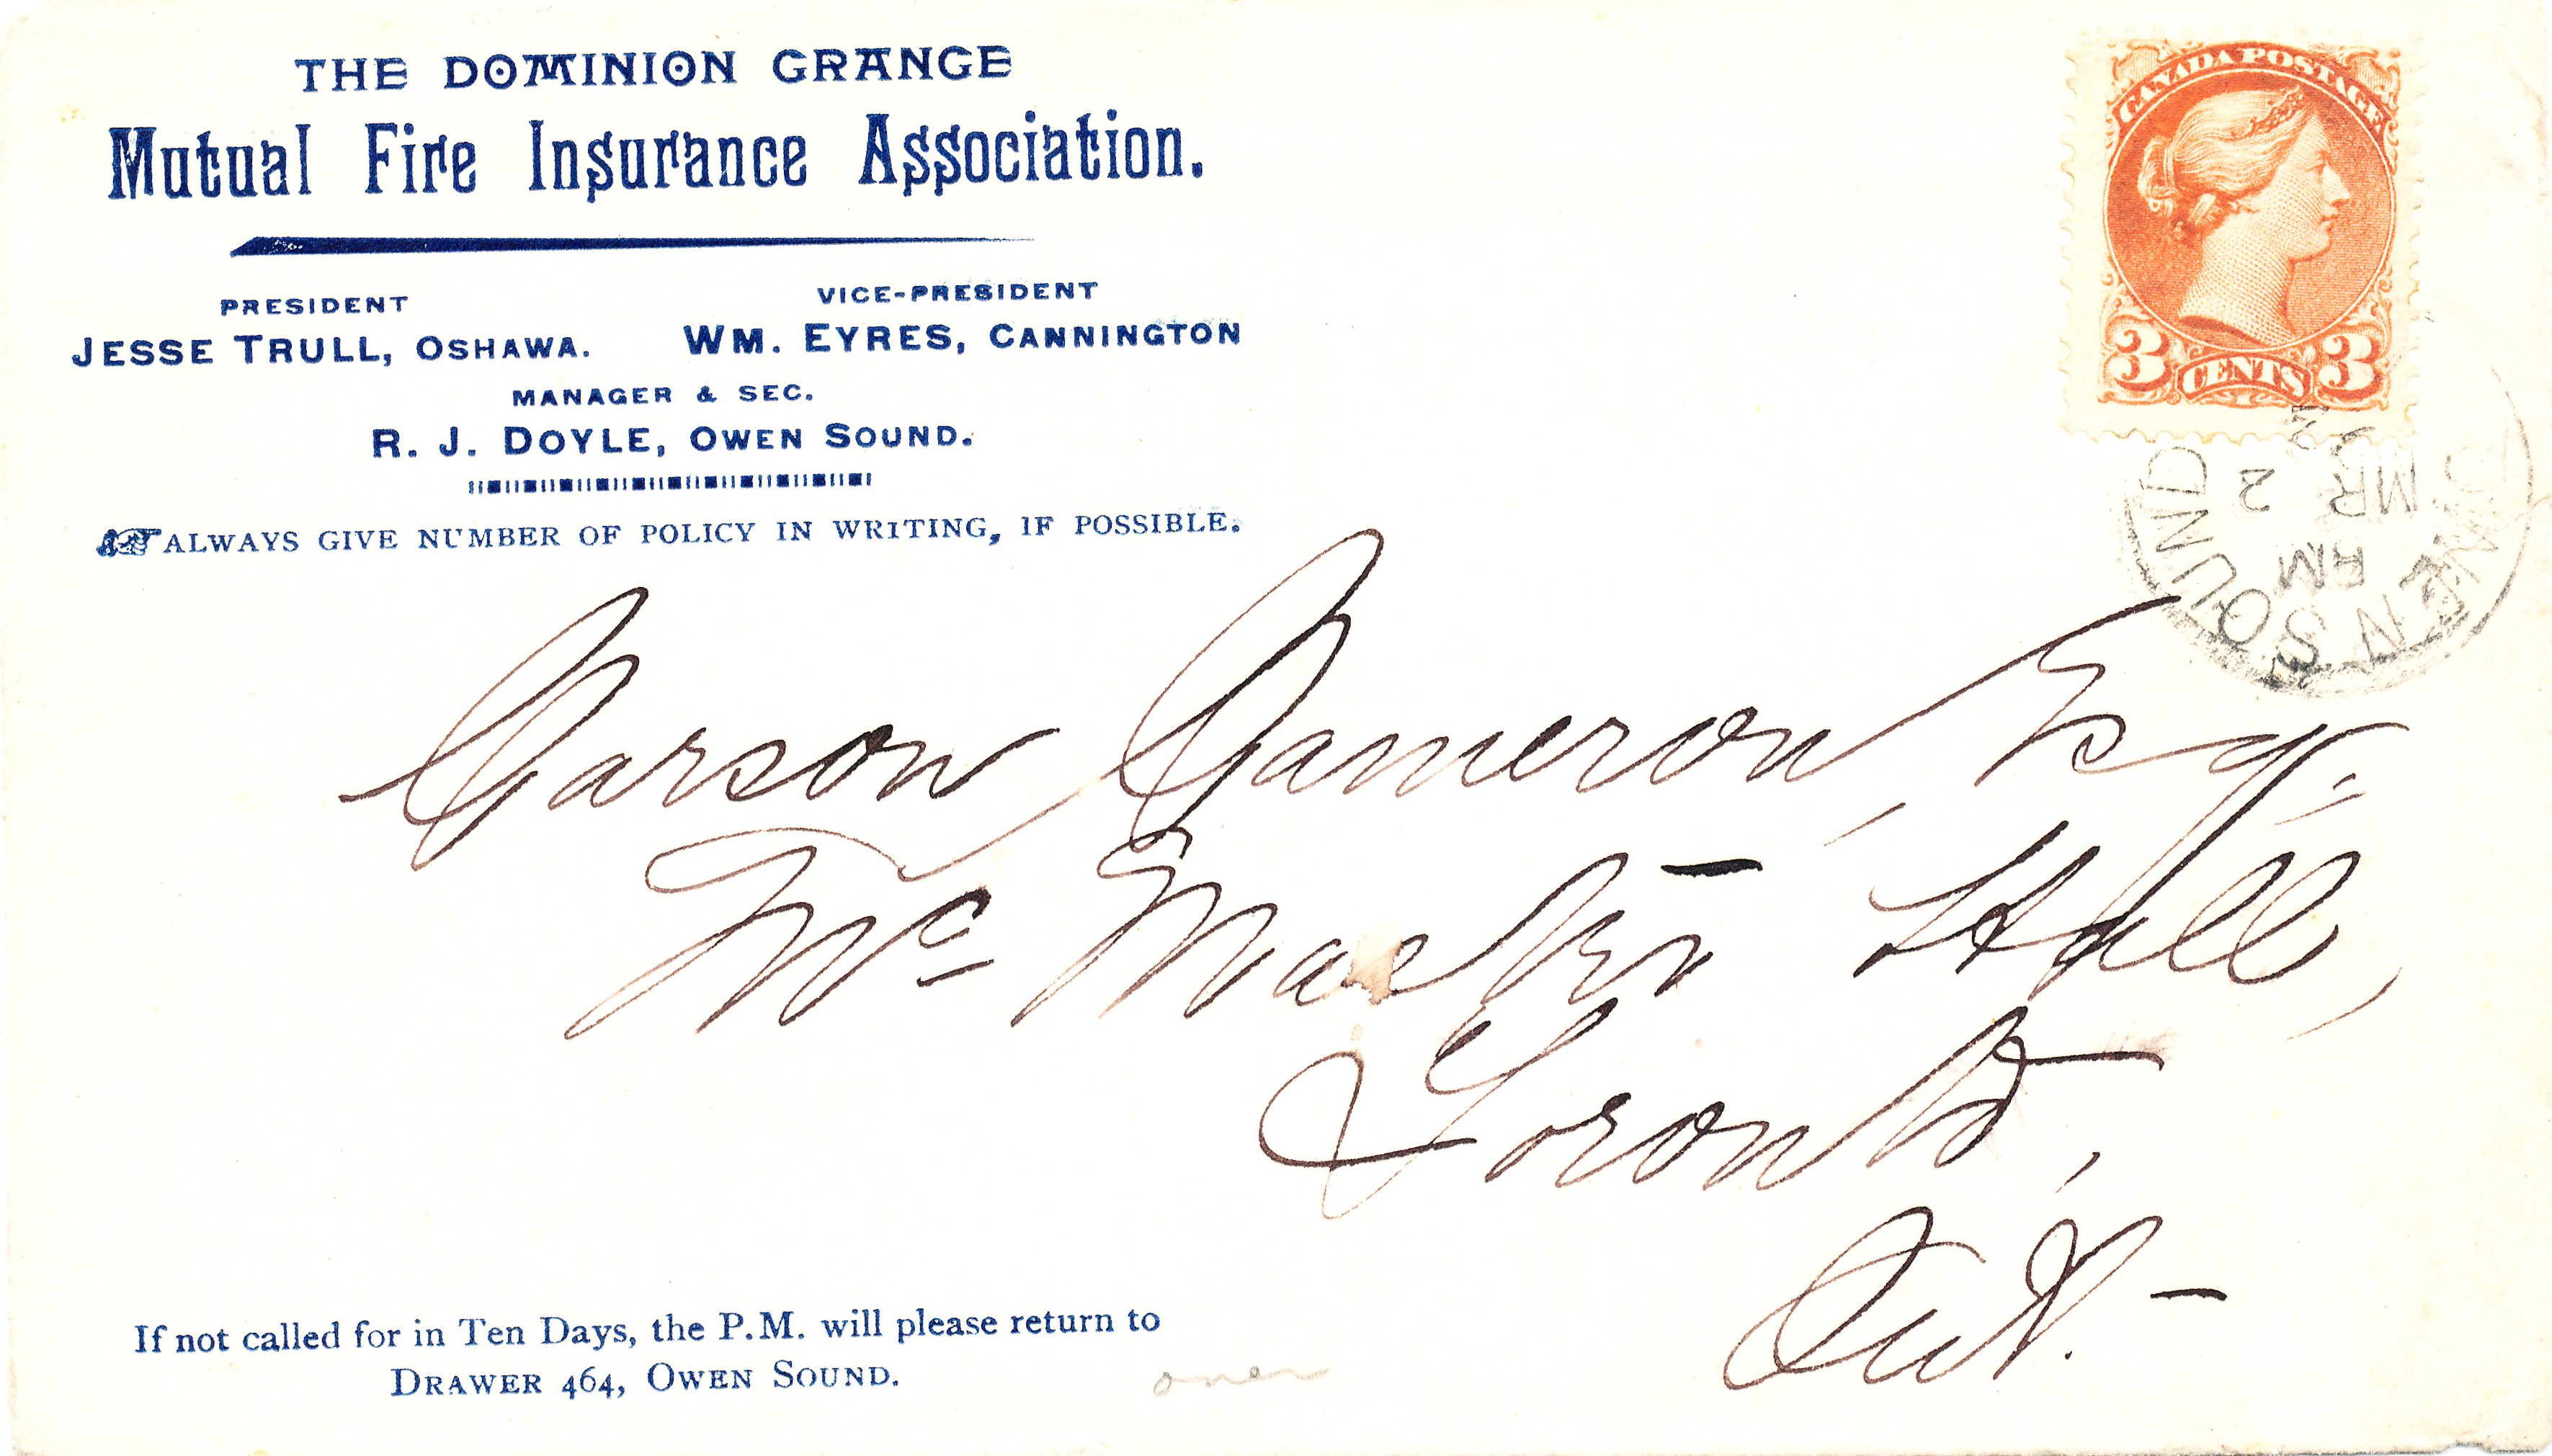 THE DOMINION GRANGE
Mutual Fire Insurance Association.
PRESIDENT
JESSE TRULL, OSHAWA.
VICE-PRESIDENT
WM. EYRES, CANNINGTON
MANAGER & SEC.
R. J. DOYLE, OWEN SOUND.
ALWAYS GIVE NUMBER OF POLICY IN WRITING, IF POSSIBLE.
CANADA POSTAGE
3 CENTS 3
OWEN SOUND
AM
MR 2
Carson Cameron, Esq.
Mc Master Hall,
Toronto,
Ont.
If not called for in Ten Days, the P.M. will please return to
DRAWER 464, OWEN SOUND.